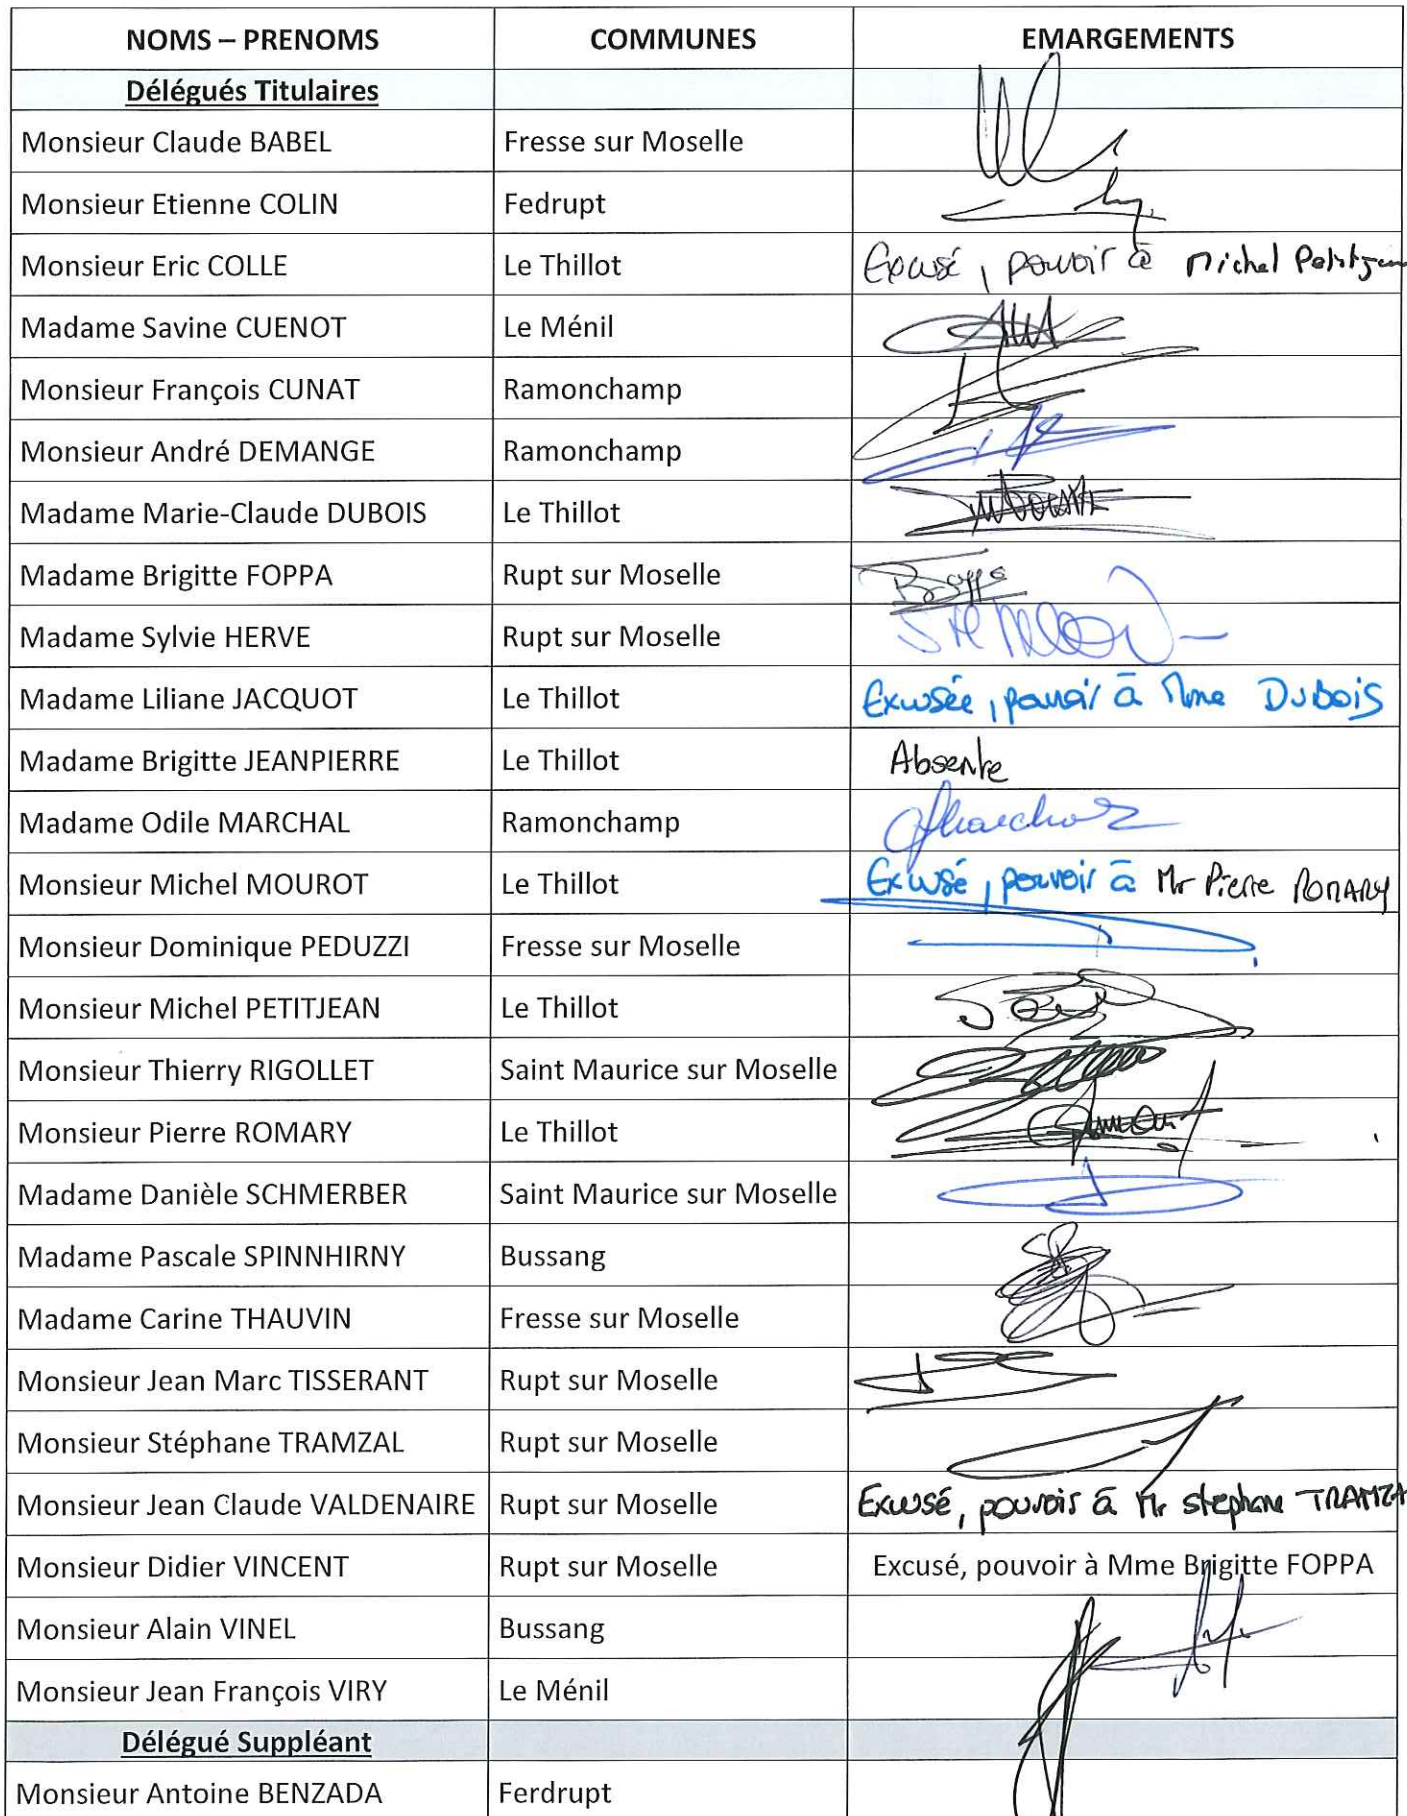 NOMS – PRENOMS COMMUNES EMARGEMENTS
Délégués Titulaires
Monsieur Claude BABEL Fresse sur Moselle
Monsieur Etienne COLIN Fedrupt
Monsieur Eric COLLE Le Thillot Excusé, pouvoir à Michel Petitjean
Madame Savine CUENOT Le Ménil
Monsieur François CUNAT Ramonchamp
Monsieur André DEMANGE Ramonchamp
Madame Marie-Claude DUBOIS Le Thillot
Madame Brigitte FOPPA Rupt sur Moselle
Madame Sylvie HERVE Rupt sur Moselle
Madame Liliane JACQUOT Le Thillot Excusée, pouvoir à Mme DUBOIS
Madame Brigitte JEANPIERRE Le Thillot Absente
Madame Odile MARCHAL Ramonchamp
Monsieur Michel MOUROT Le Thillot Excusé, pouvoir à Mr Pierre ROMARY
Monsieur Dominique PEDUZZI Fresse sur Moselle
Monsieur Michel PETITJEAN Le Thillot
Monsieur Thierry RIGOLLET Saint Maurice sur Moselle
Monsieur Pierre ROMARY Le Thillot
Madame Danièle SCHMERBER Saint Maurice sur Moselle
Madame Pascale SPINNHIRNY Bussang
Madame Carine THAUVIN Fresse sur Moselle
Monsieur Jean Marc TISSERANT Rupt sur Moselle
Monsieur Stéphane TRAMZAL Rupt sur Moselle
Monsieur Jean Claude VALDENAIRE Rupt sur Moselle Excusé, pouvoir à Mr stephane TRAMZA
Monsieur Didier VINCENT Rupt sur Moselle Excusé, pouvoir à Mme Brigitte FOPPA
Monsieur Alain VINEL Bussang
Monsieur Jean François VIRY Le Ménil
Délégué Suppléant
Monsieur Antoine BENZADA Ferdrupt